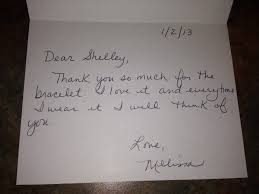 1/2/13
Dear Shelley,
Thank you so much for the
bracelet. I love it and everytime
I wear it I will think of
you.
Love,
Melissa